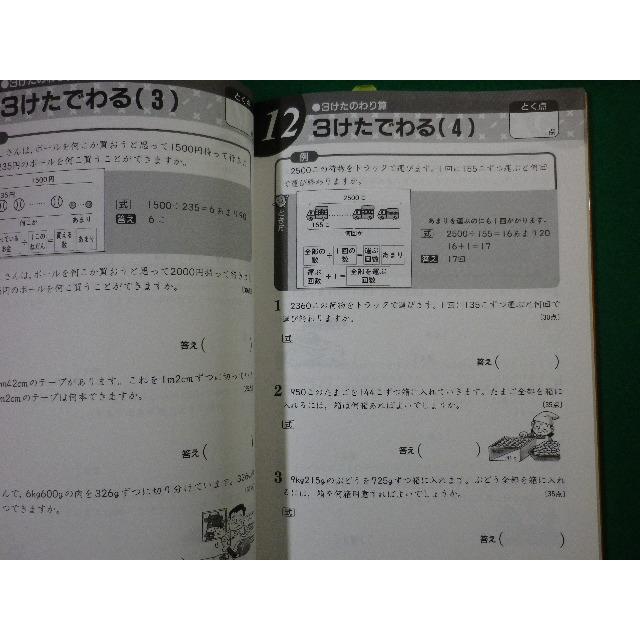 3けたでわる(3)
とく点
さんは、ボールを何こか買おうと思って1500円持って行き
235円のボールを何こ買うことができますか。
1500円
35円
何こか
あまり
1この
ねだん
買える
数
あまり
式 1500÷235=6あまり90
答え 6こ
さんは、ボールを何こか買おうと思って2000円持って行き
円のボールを何こ買うことができますか。
答え( )
m42cmのテープがあります。これを1m2cmずつに切って
m2cmのテープは何本できますか。
答え( )
んで、6kg600gの肉を326gずつに切り分けています。
つできますか。
12
●3けたのわり算
3けたでわる(4)
とく点
点
例
2500この荷物をトラックで運びます。1回に155こずつ運ぶと何回
で運び終わりますか。
2500こ
155こ
何回か
全部の
数
÷
1回の
数
=
運ぶ
回数
あまり
運ぶ
回数
+1=
全部を運ぶ
回数
あまりを運ぶのにも1回かかります。
式 2500÷155=16あまり20
16+1=17
答え 17回
1 2360この荷物をトラックで運びます。1回に135こずつ運ぶと何回で
運び終わりますか。 (30点)
式
答え( )
2 950このたまごを144こずつ箱に入れていきます。たまご全部を箱に
入れるには、箱は何箱あればよいでしょうか。 (35点)
式
答え( )
3 9kg215gのぶどうを725gずつ箱に入れます。ぶどう全部を箱に入れ
るには、箱を何箱用意すればよいでしょうか。 (35点)
式
答え( )